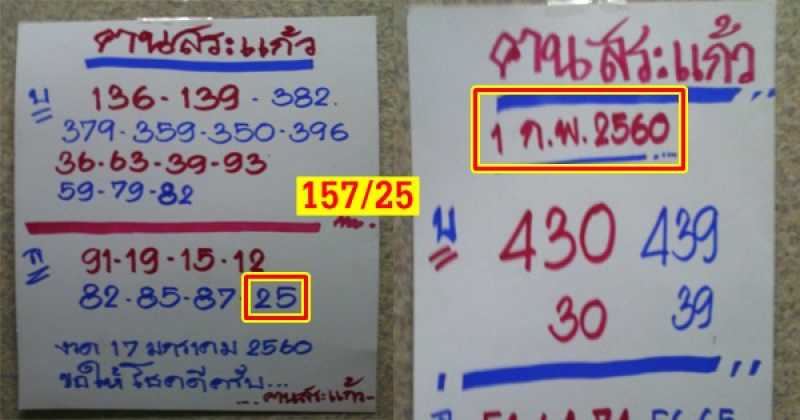 คนสระแก้ว
บ 136-139-382.
379-359-350-396
36-63-39-93
59-79-82
ล 91-19-15-12
82-85-87-25
งวด 17 มกราคม 2560
ขอให้โชคดีครับ...
...คนสระแก้ว-
157/25
คนสระแก้ว
1 ก.พ. 2560
บ 430 439
30 39